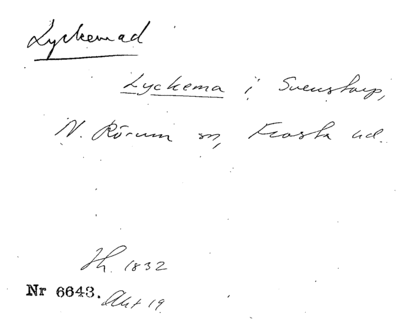 Lyckemad
Lyckema i Svenstorp,
N. Rörum sn, Frosta hd.
Jh. 1832
Nr 6643. Akt 19.